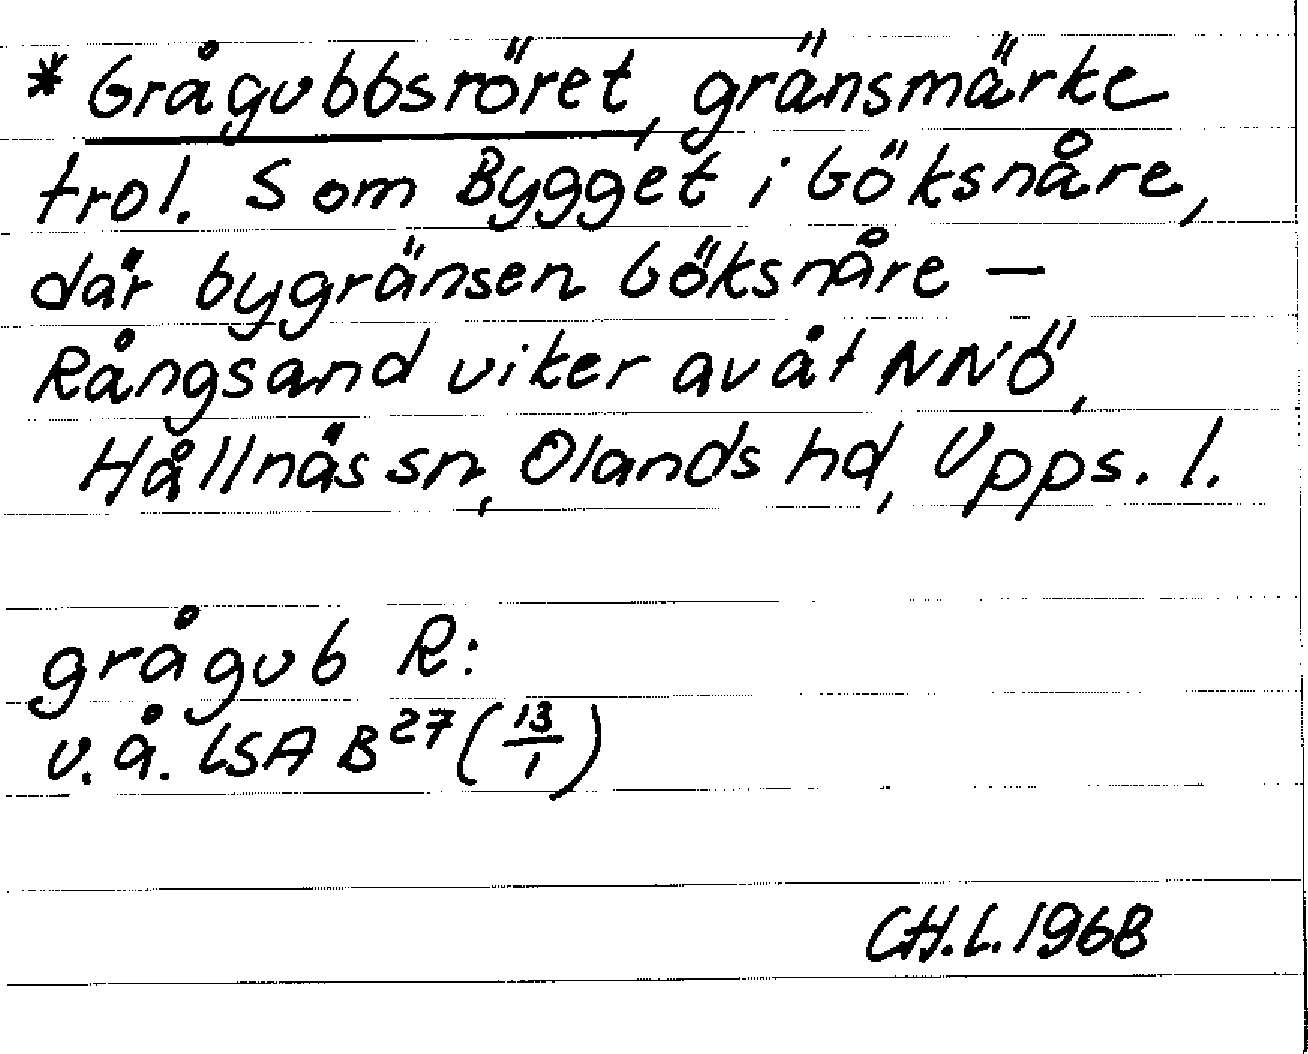 * Grågubbsröret, gränsmärke
trol. S om Bygget i Göksnåre,
där bygränsen Göksnåre —
Rångsand viker av åt NNÖ,
Hållnäs sn, Olands hd, Upps. l.
grågub R:
v. å. LSA B²⁷ (13/1)
CH.L. 1968